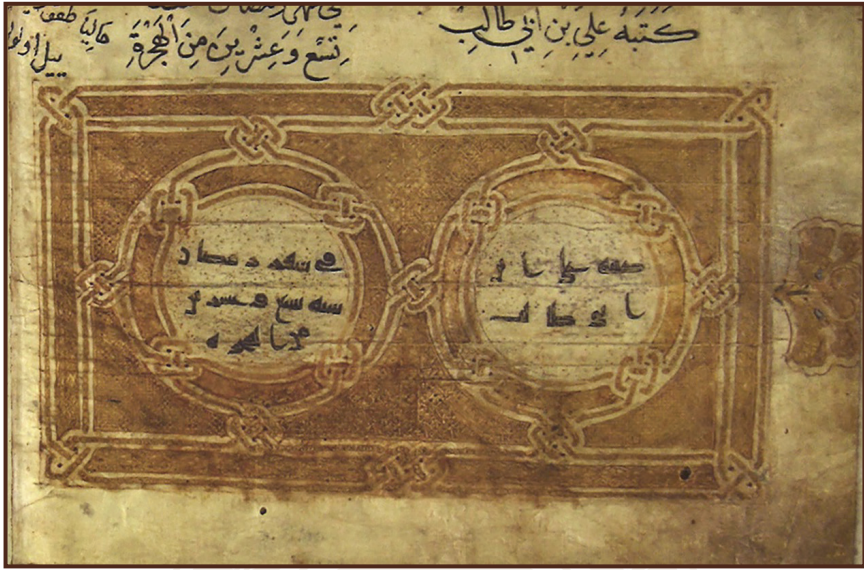 كتبه علي بن ابي طالب
تسع وعشرين من الهجرة
كتبه علي بن
ابي طالب
في شهر رمضان
سنه تسع وعشرين
من الهجره